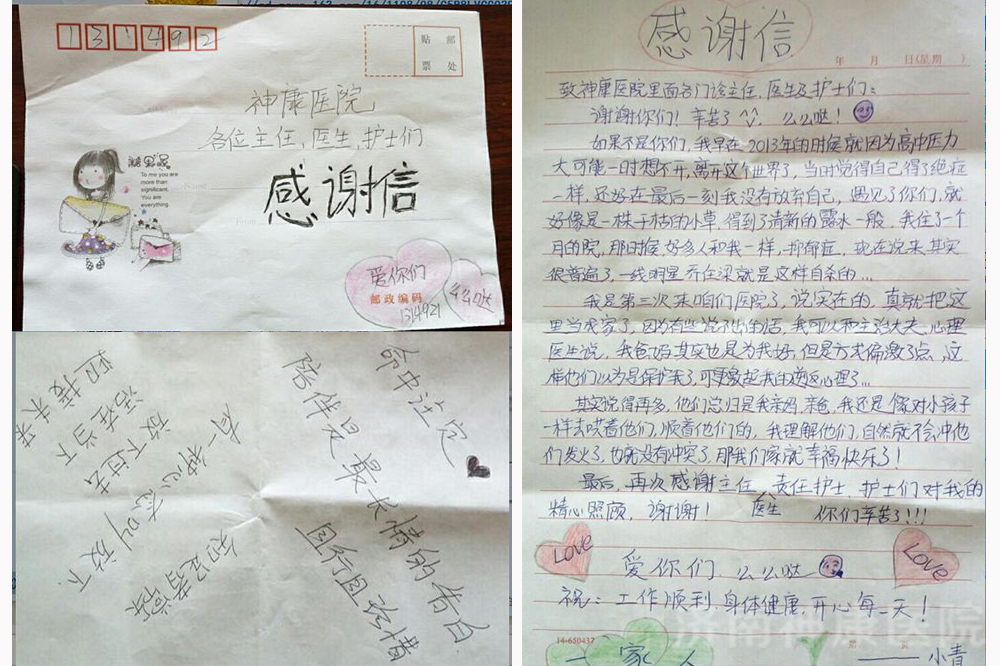 131492
贴 邮
票 处
神康医院
各位主任、医生、护士们
感谢信
To me you are
more than
significant.
You are
everything.
爱你们
么么哒
邮政编码
1314921
命中注定
陪伴是最长情的告白
且行且珍惜
有一种心态叫放下
知足常乐
放下过去
活在当下
迎接未来
感谢信
年 月 日(星期 )
致神康医院里面各门诊主任、医生及护士们:
谢谢你们!辛苦了^^. 么么哒!
如果不是你们,我早在2013年的时候就因为高中压力
大可能一时想不开,离开这个世界了,当时觉得自己得了绝症
一样,还好在最后一刻我没有放弃自己,遇见了你们,就
好像是一株干枯的小草,得到了清新的露水一般。我住了一个
月的院,那时候好多人和我一样,抑郁症,现在说来其实
很普遍了,一线明星乔任梁就是这样自杀的...
我是第三次来咱们医院了,说实在的,真就把这
里当成家了,因为有些说不出的话,我可以和主治大夫、心理
医生说,我爸妈其实也是为我好,但是方式偏激了点,这
样他们以为是保护我了,可更激起我的逆反心理了...
其实说得再多,他们总归是我亲妈、亲爸,我还是像对小孩子
一样去哄着他们,顺着他们的,我理解他们,自然就不会冲他
们发火了,也就没有冲突了,那我们家就幸福快乐了!
最后,再次感谢主任、医生、责任护士、护士们对我的
精心照顾,谢谢! 你们辛苦了!!!
Love
Love
爱你们 么么哒
祝:工作顺利,身体健康,开心每一天!
14-650437
一家人
——小青
济南神康医院